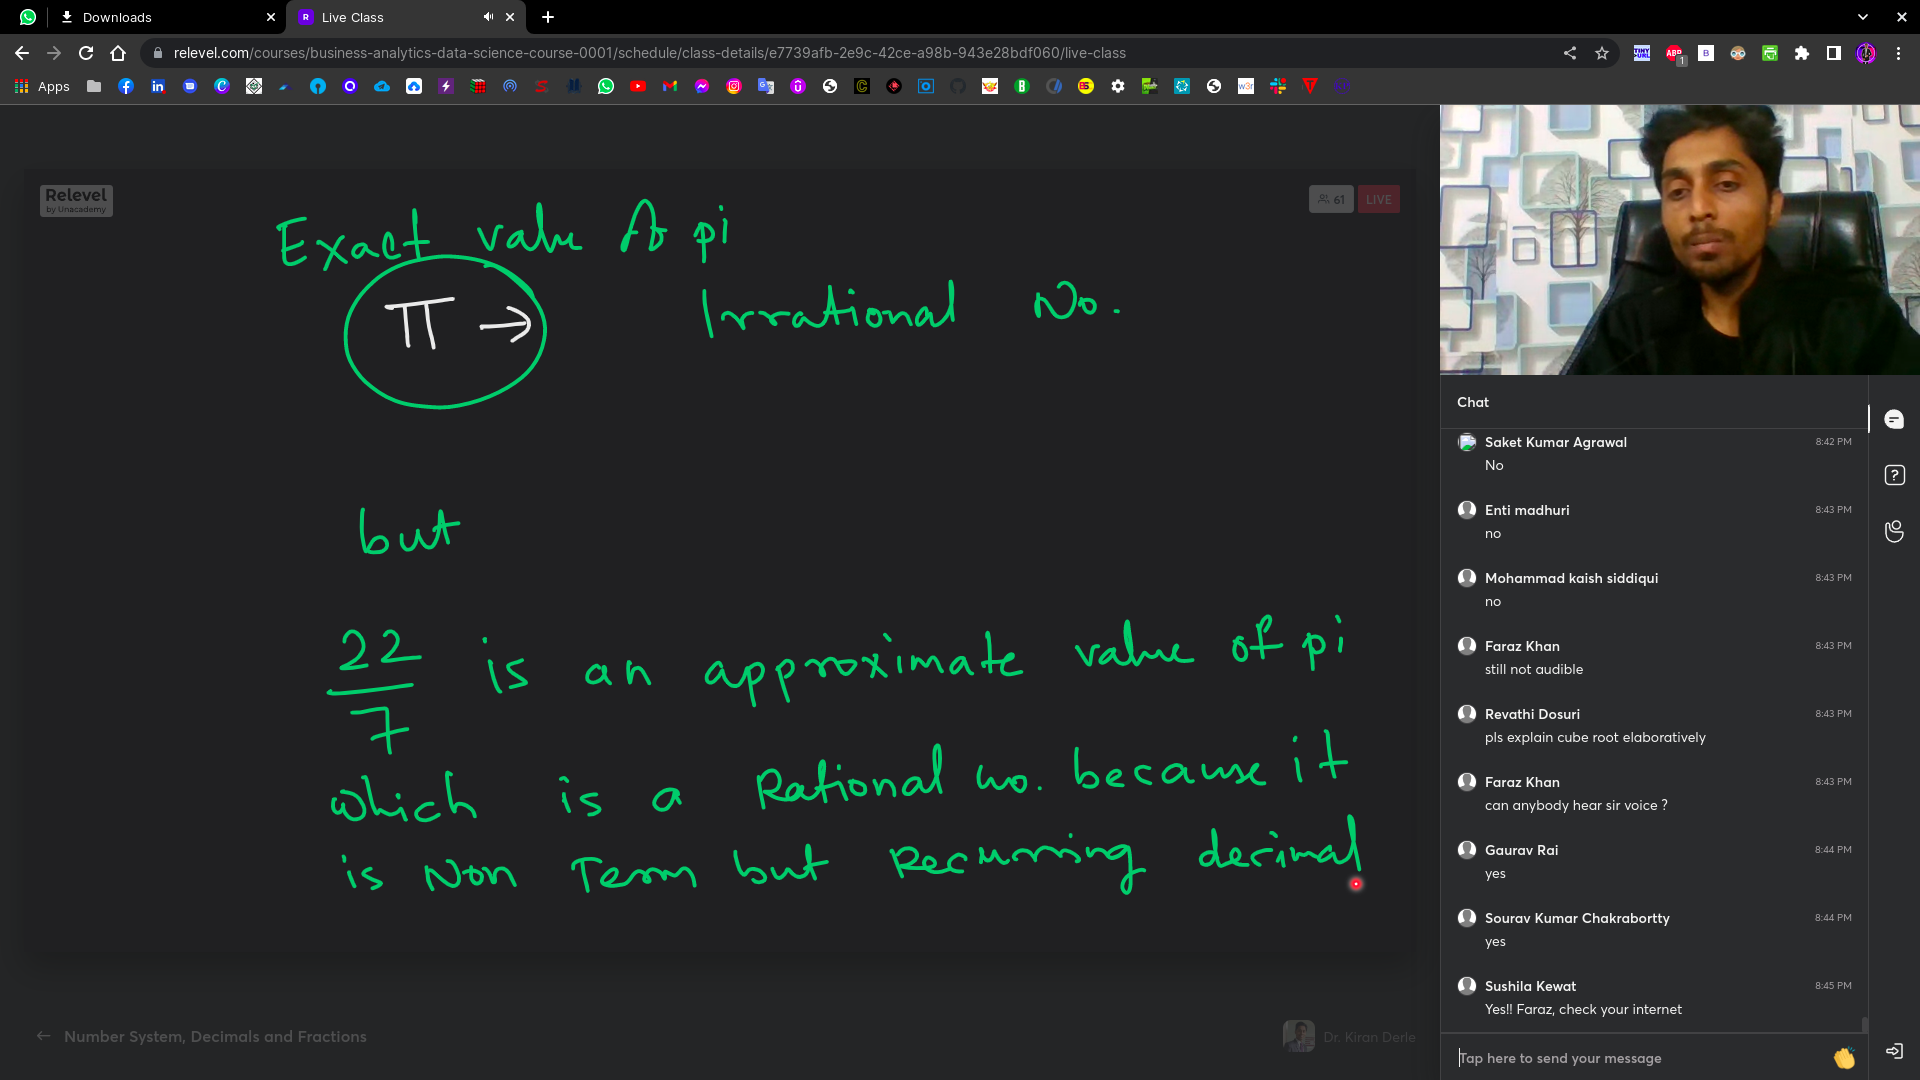 Downloads
Live Class
relevel.com/courses/business-analytics-data-science-course-0001/schedule/class-details/e7739afb-2e9c-42ce-a98b-943e28bdf060/live-class
Apps
Relevel
by Unacademy
61
LIVE
Exact value of pi
π → Irrational No.
but
22
7
is an approximate value of pi
which is a Rational no. because it
is Non Term but Recurring decimal
Number System, Decimals and Fractions
Dr. Kiran Derle
Chat
Saket Kumar Agrawal 8:42 PM
No
Enti madhuri 8:43 PM
no
Mohammad kaish siddiqui 8:43 PM
no
Faraz Khan 8:43 PM
still not audible
Revathi Dosuri 8:43 PM
pls explain cube root elaboratively
Faraz Khan 8:43 PM
can anybody hear sir voice ?
Gaurav Rai 8:44 PM
yes
Sourav Kumar Chakrabortty 8:44 PM
yes
Sushila Kewat 8:45 PM
Yes!! Faraz, check your internet
Tap here to send your message